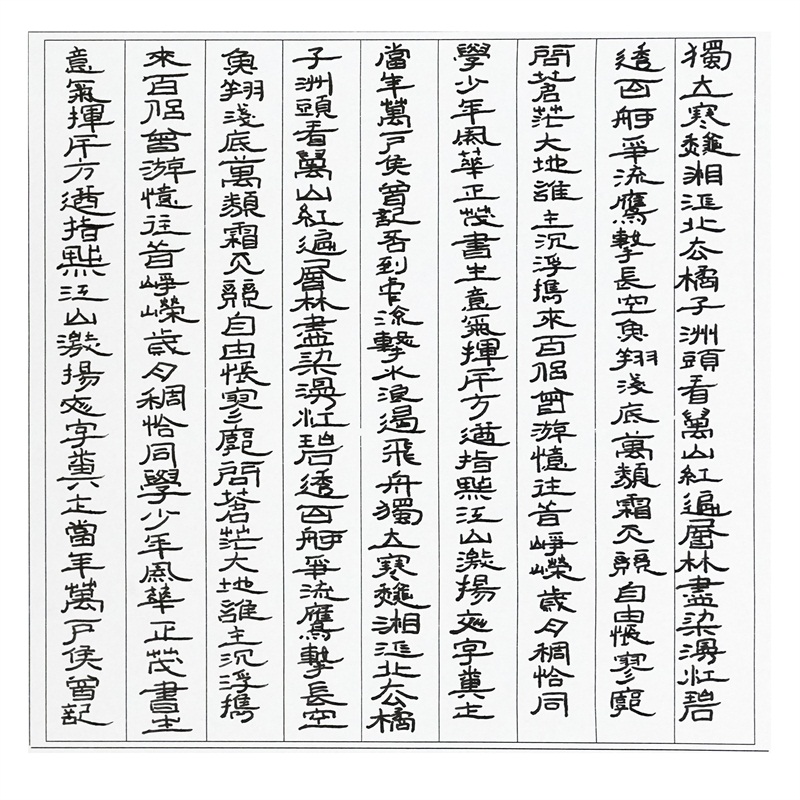 獨立寒龝湘江北去橘子洲頭看萬山紅遍層林盡染漫江碧
透百舸爭流鷹擊長空魚翔淺底萬類霜天競自由悵寥廓
問蒼茫大地誰主沉浮攜來百侶曾游憶往昔崢嶸歲月稠恰同
學少年風華正茂書生意氣揮斥方遒指點江山激揚文字糞土
當年萬戶侯曾記否到中流擊水浪遏飛舟獨立寒龝湘江北去橘
子洲頭看萬山紅遍層林盡染漫江碧透百舸爭流鷹擊長空
魚翔淺底萬類霜天競自由悵寥廓問蒼茫大地誰主沉浮攜
來百侶曾游憶往昔崢嶸歲月稠恰同學少年風華正茂書生
意氣揮斥方遒指點江山激揚文字糞土當年萬戶侯曾記